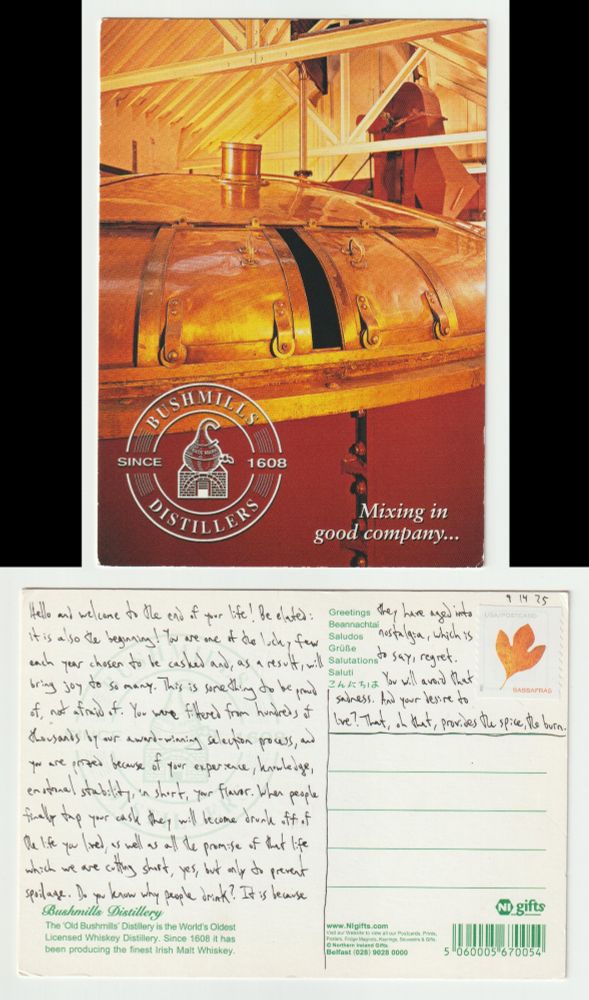 BUSHMILLS
SINCE 1608
DISTILLERS
Mixing in
good company...
9 14 25
Hello and welcome to the end of your life! Be elated:
it is also the beginning! You are one of the lucky few
each year chosen to be casked and, as a result, will
bring joy to so many. This is something to be proud
of, not afraid of. You were filtered from hundreds of
thousands by our award-winning selection process, and
you are prized because of your experience, knowledge,
emotional stability, in short, your flavor. When people
finally tap your cask they will become drunk off of
the life you lived, as well as all the promise of that life
which we are cutting short, yes, but only to prevent
spoilage. Do you know why people drink? It is because
they have aged into
nostalgia, which is
to say, regret.
You will avoid that
sadness. And your desire to
live? That, oh that, provides the spice, the burn.
Greetings
Beannachtaí
Saludos
Grüße
Salutations
Saluti
こんにちは
USA/POSTCARD
SASSAFRAS
Bushmills Distillery
The 'Old Bushmills' Distillery is the World's Oldest
Licensed Whiskey Distillery. Since 1608 it has
been producing the finest Irish Malt Whiskey.
NI gifts
www.NIgifts.com
Visit our Website to view all our Postcards, Prints,
Posters, Fridge Magnets, Keyrings, Souvenirs & Gifts.
© Northern Ireland Gifts
Belfast (028) 9028 0000
5 060005 670054